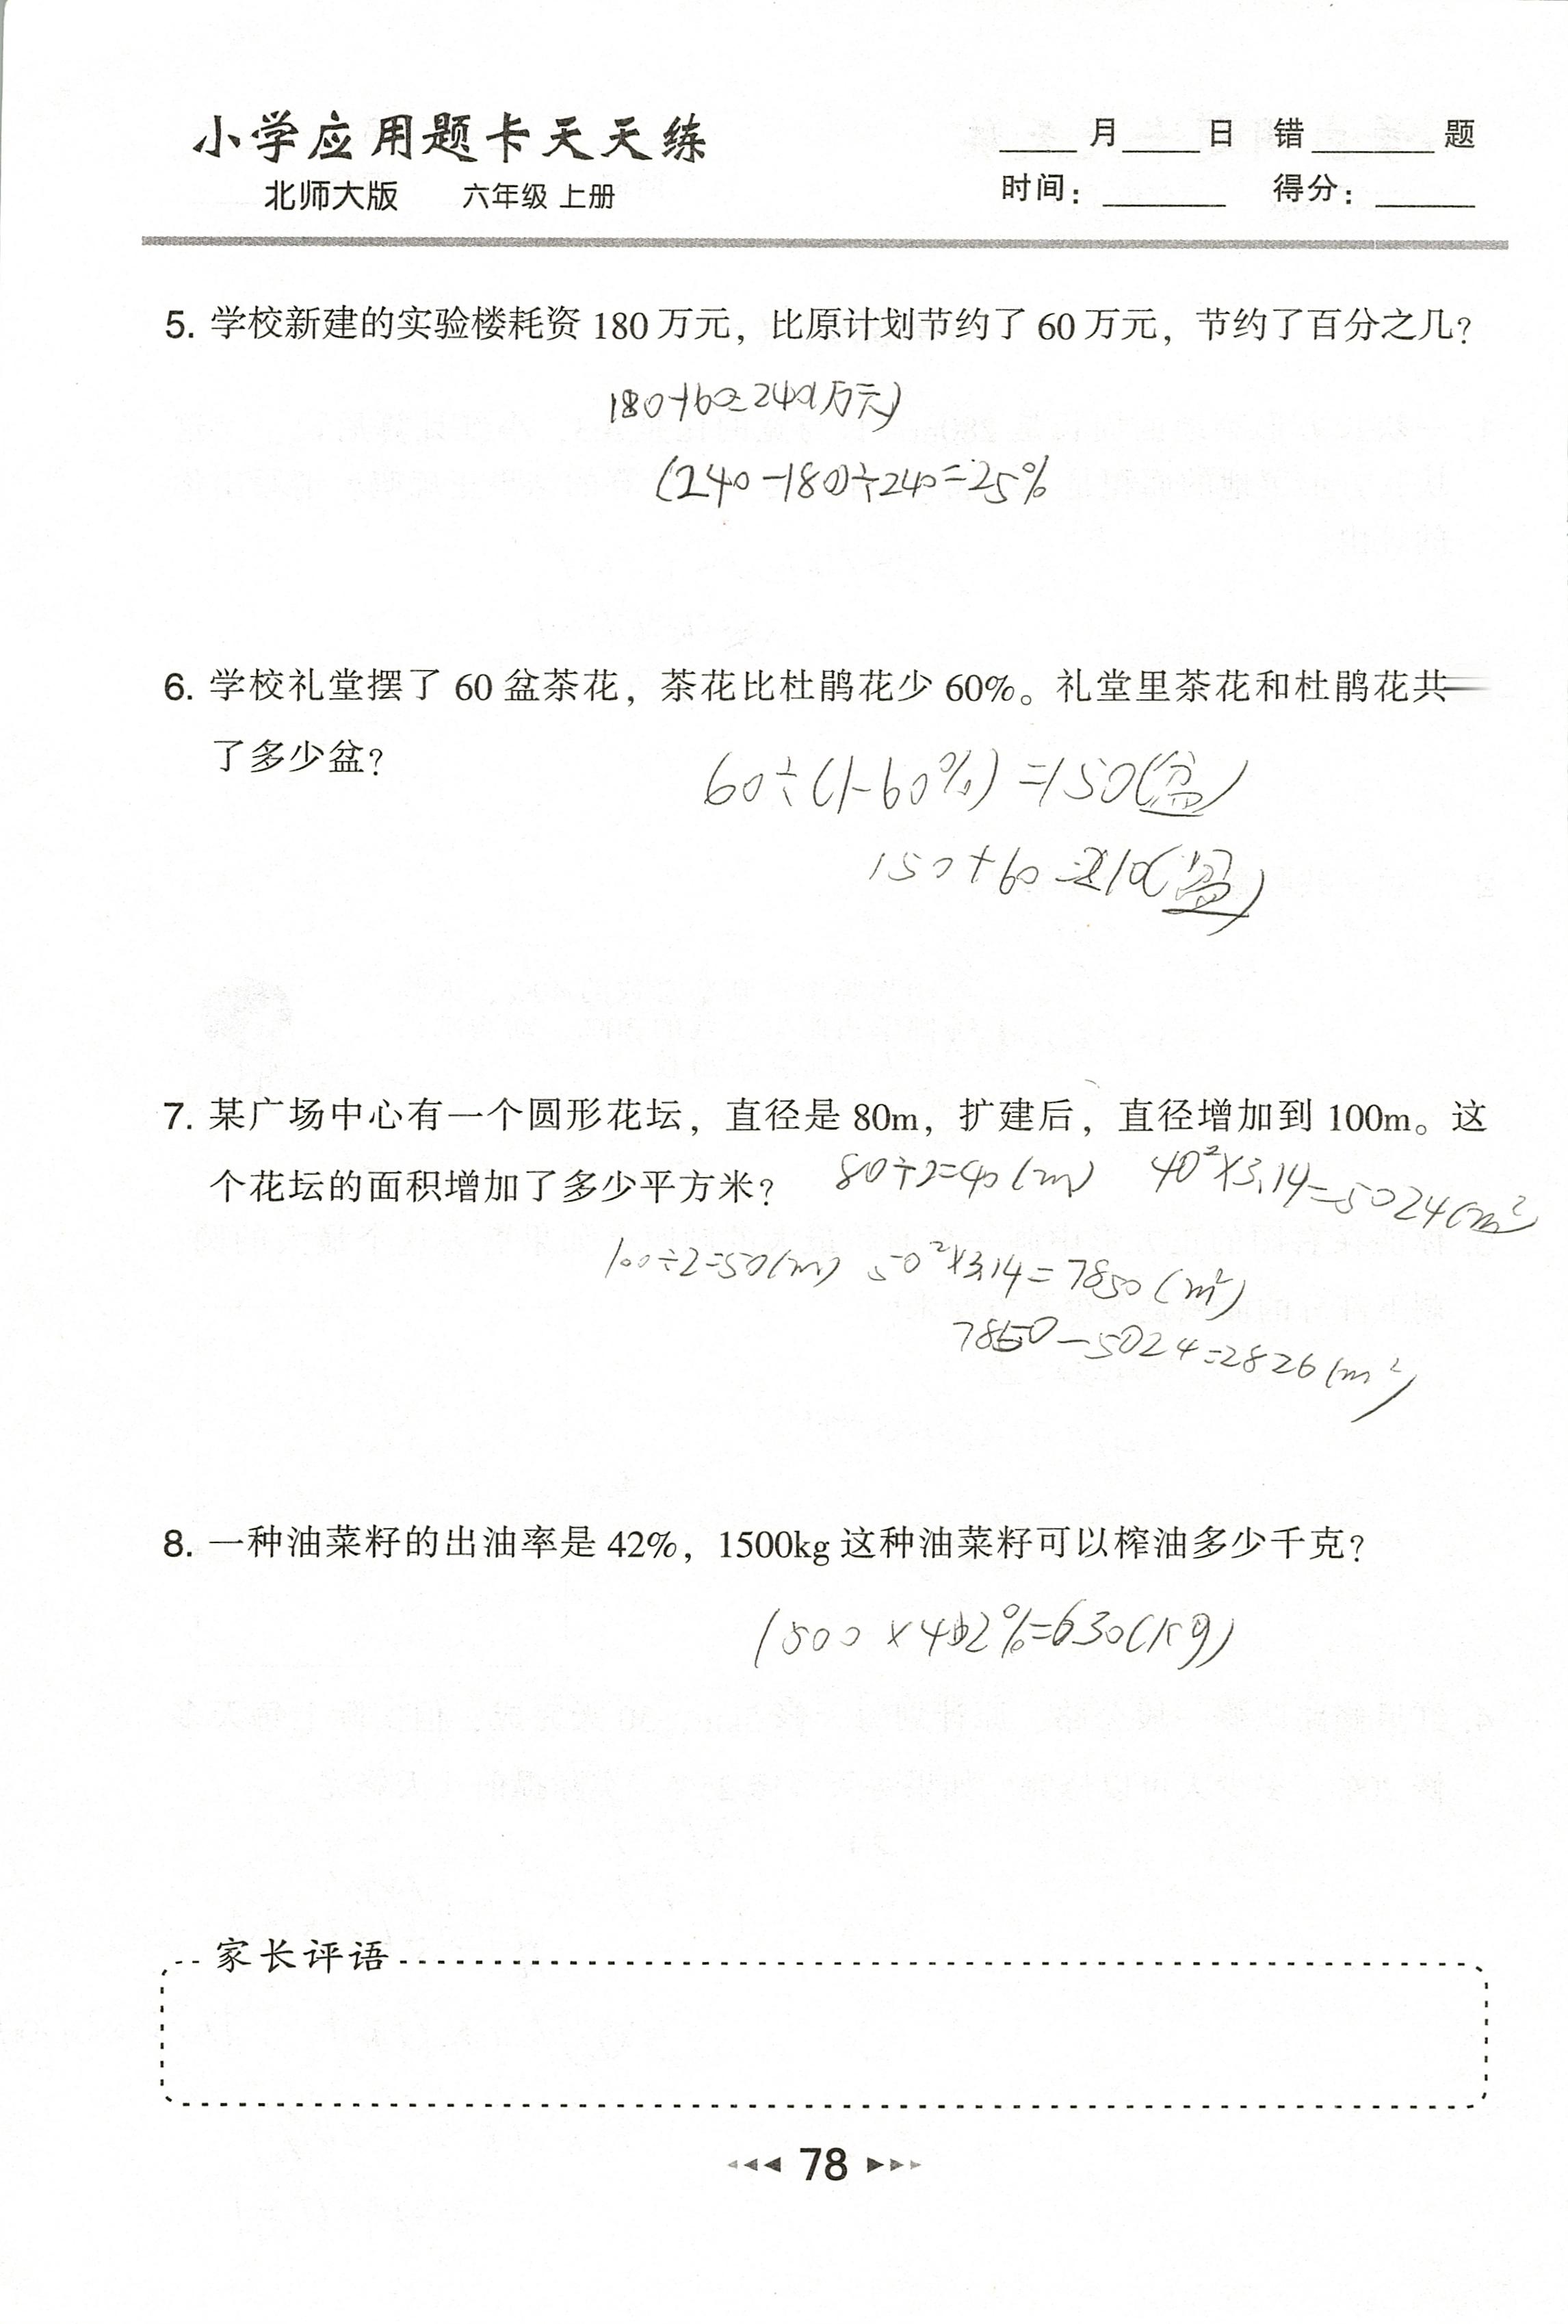 小学应用题卡天天练
北师大版 六年级 上册
____月____日 错______题
时间：______ 得分：_____
5. 学校新建的实验楼耗资 180 万元，比原计划节约了 60 万元，节约了百分之几？
180+60=240(万元)
(240-180)÷240=25%
6. 学校礼堂摆了 60 盆茶花，茶花比杜鹃花少 60%。礼堂里茶花和杜鹃花共
了多少盆？
60÷(1-60%)=150(盆)
150+60=210(盆)
7. 某广场中心有一个圆形花坛，直径是 80m，扩建后，直径增加到 100m。这
个花坛的面积增加了多少平方米？ 80÷2=40(m) 40²×3.14=5024(m²)
100÷2=50(m) 50²×3.14=7850(m²)
7850-5024=2826(m²)
8. 一种油菜籽的出油率是 42%，1500kg 这种油菜籽可以榨油多少千克？
1500×42%=630(kg)
家长评语
78